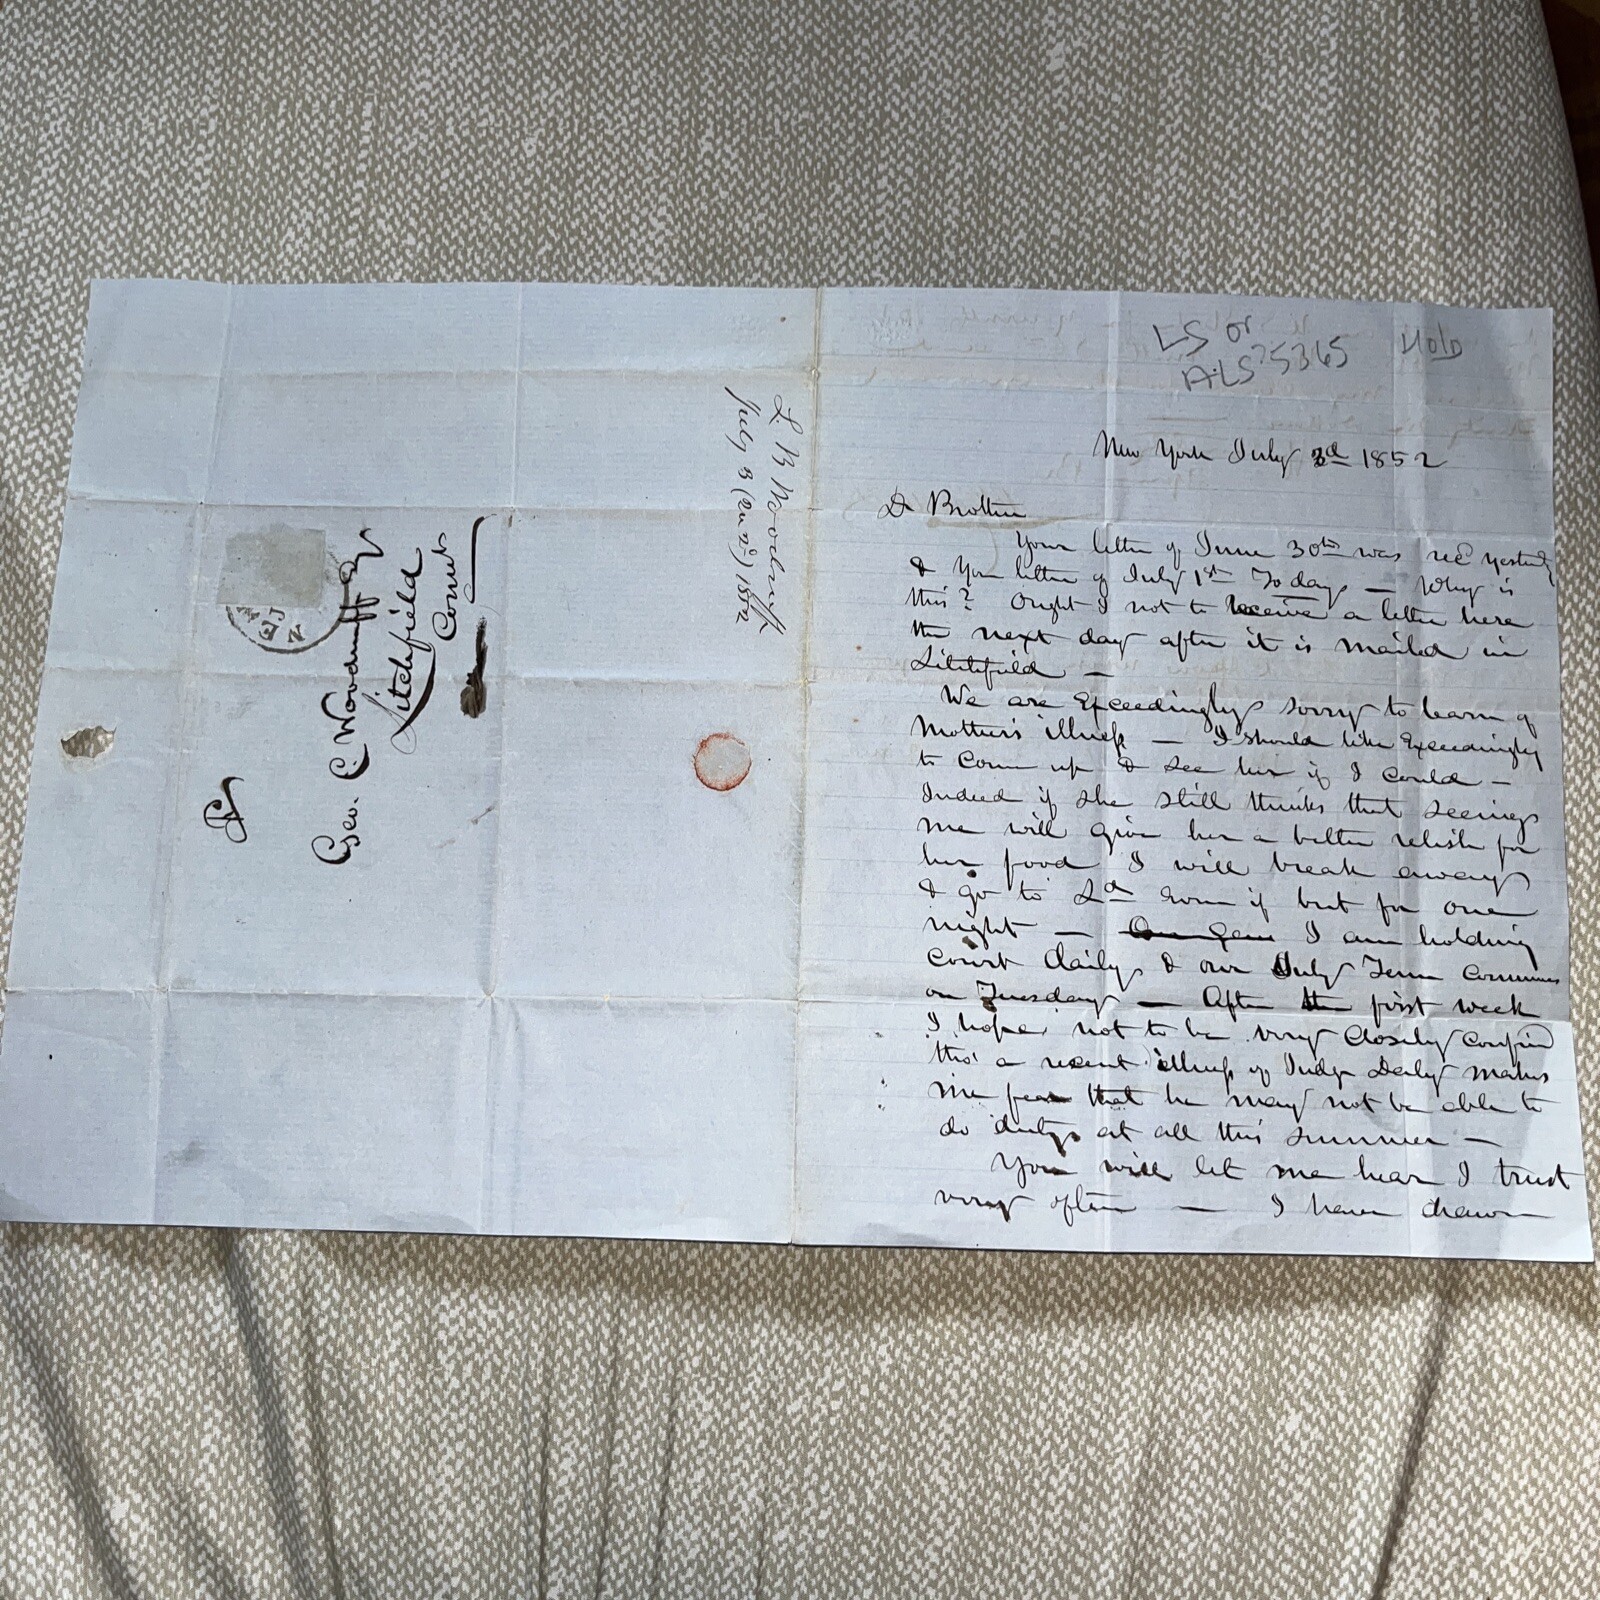 Geo. C. Woodruff Esq
Litchfield
Connt
NEW
JU
L. B. Woodruff
July 3 (2d) 1852
LS or
ALS 75365
Hold
New York July 3d 1852
Dr Brother
Your letter of June 30th was recd yesterday
& Your letter of July 1st To day — Why is
this? Ought I not to receive a letter here
the next day after it is mailed in
Litchfield —
We are Exceedingly sorry to learn of
Mother's illness — I should like Exceedingly
to Come up & see her if I could —
Indeed if she still thinks that seeing
me will give her a better relish for
her food I will break away
& go to Ld even if but for one
night — I am holding
Court daily & our July Term Commences
on Tuesday — After the first week
I hope not to be very Closely Confined
tho' a recent illness of Judge Daly makes
me fear that he may not be able to
do duty at all this summer —
You will let me hear I trust
very often — I have drawn